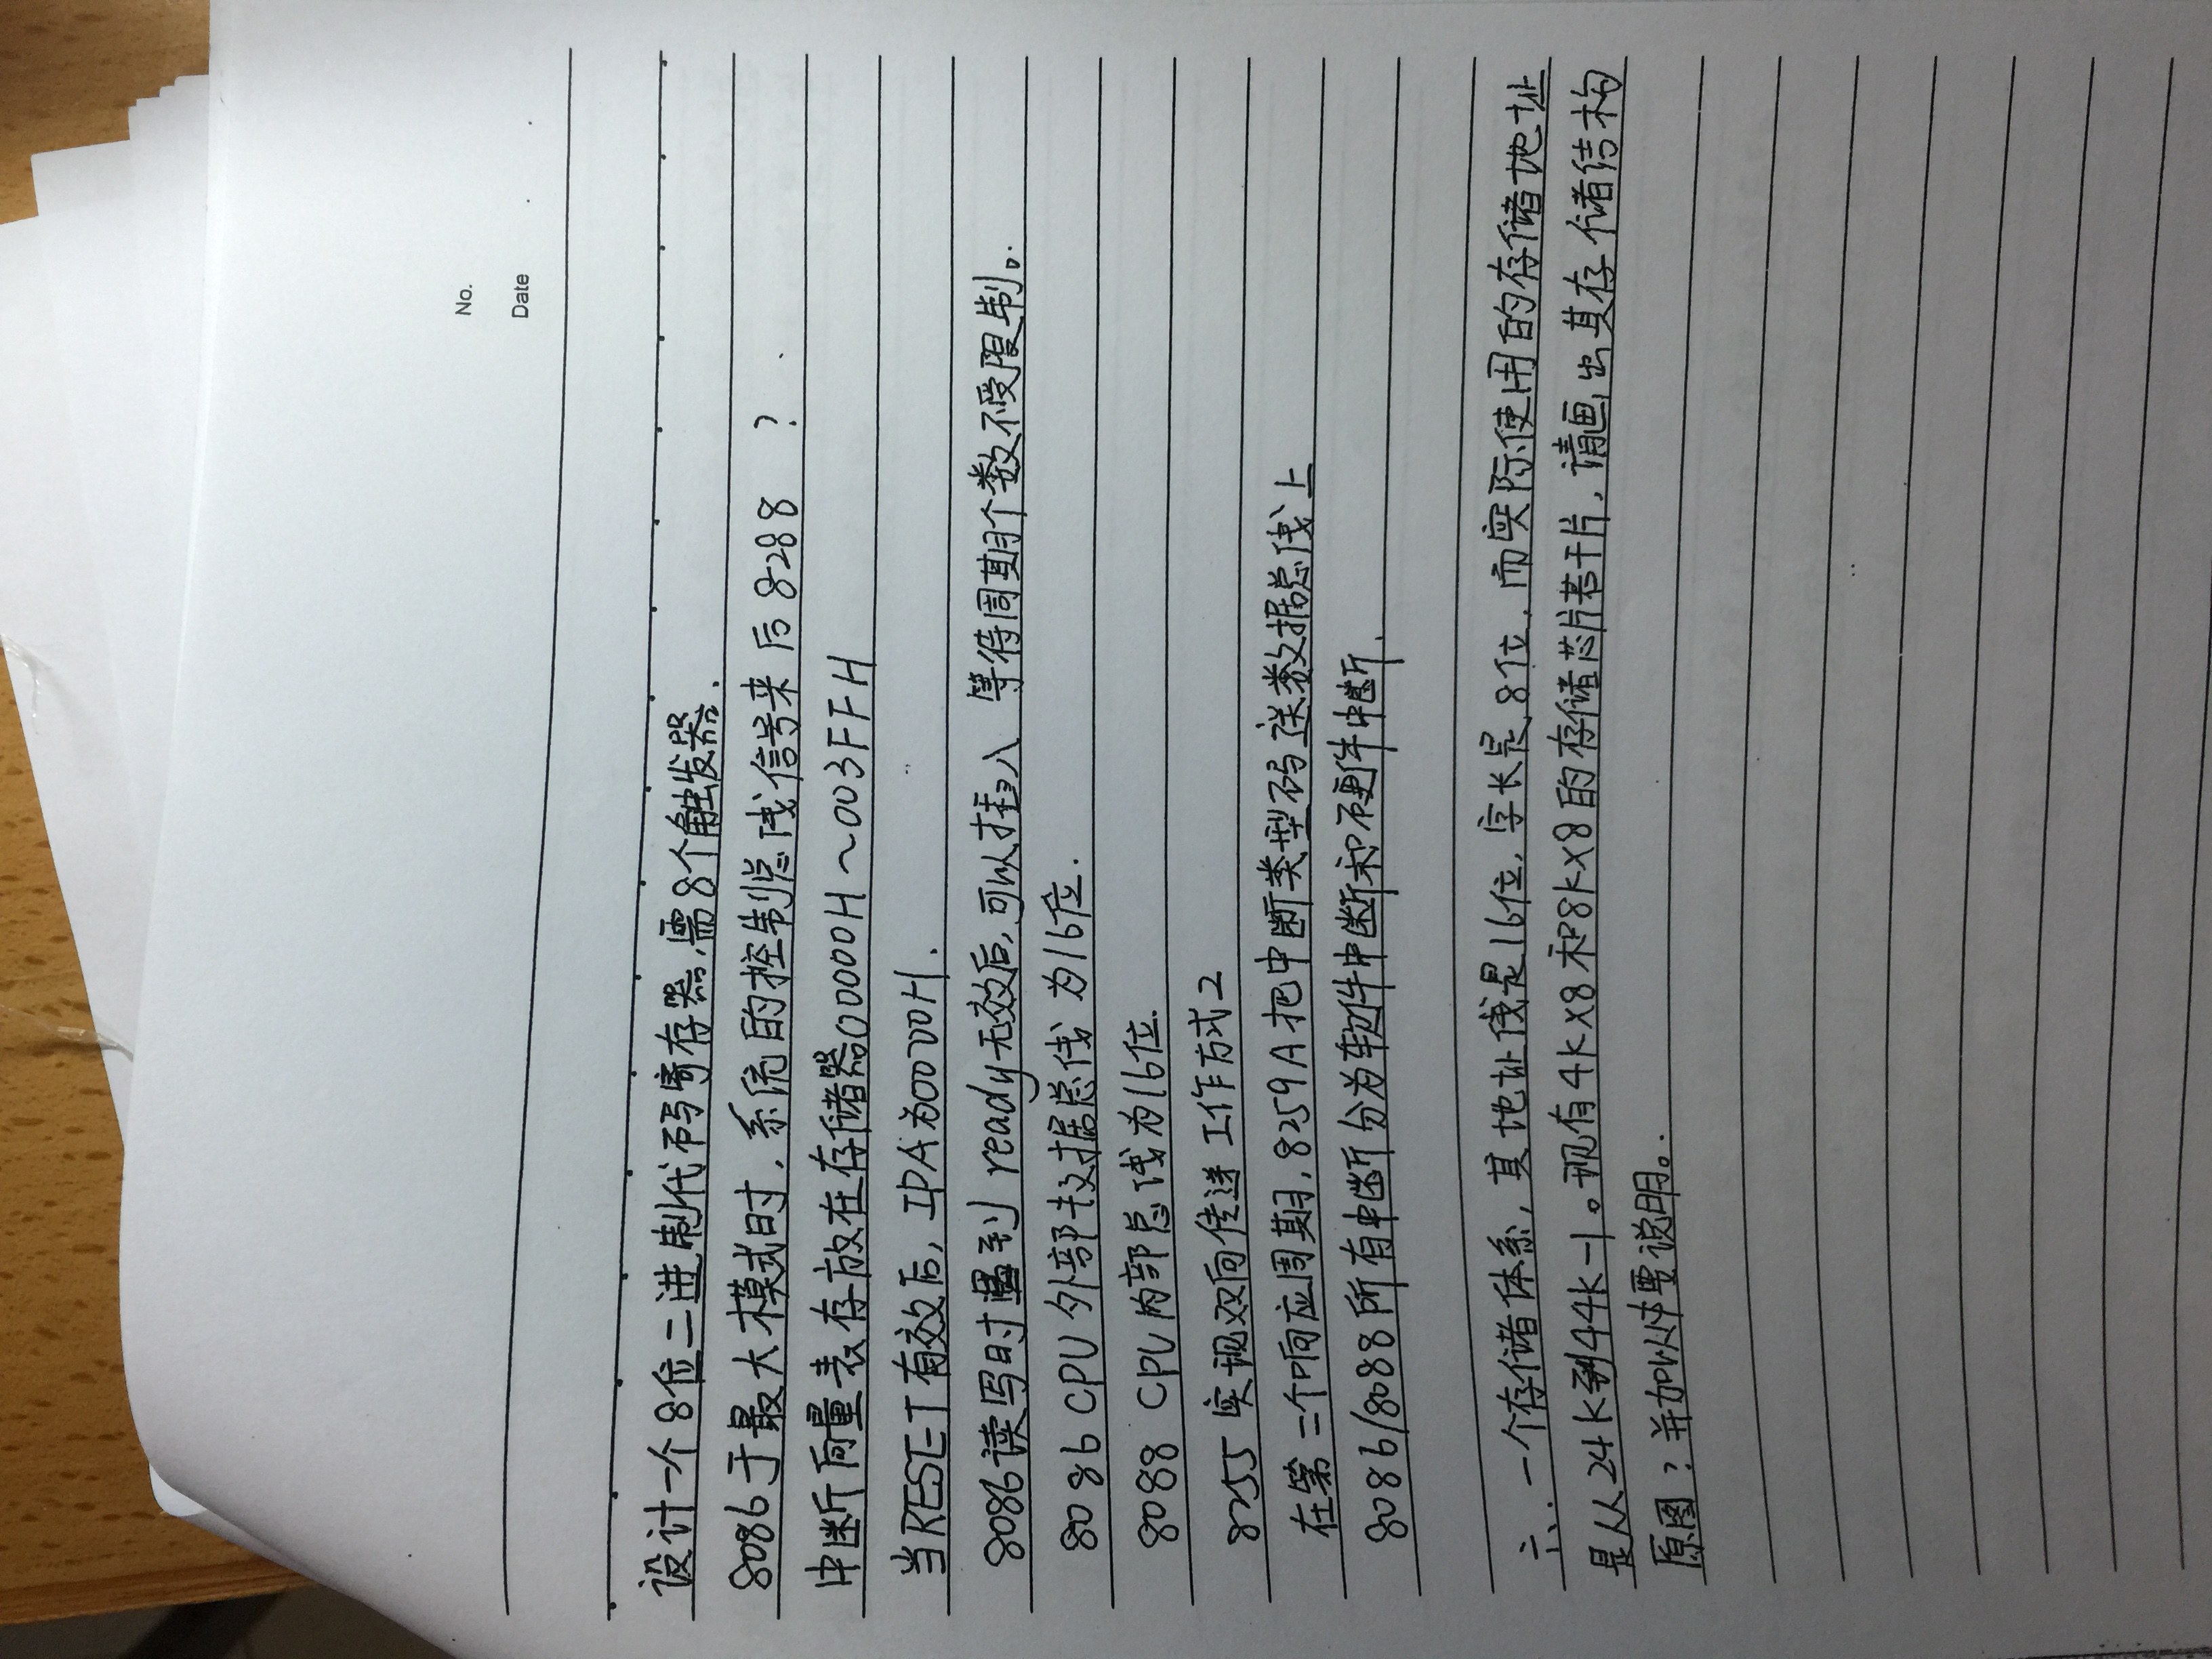 No.
Date
设计一个8位二进制代码寄存器,需8个触发器.
8086于最大模式时,系统的控制总线信号来后8288 ?
中断向量表存放在存储器00000H~003FFH
当RESET有效后,IPA为0000H.
8086读写时遇到ready无效后,可以插入 等待周期个数不受限制。
8086 CPU 外部数据总线 为16位.
8088 CPU内部总线为16位.
8255 实现双向传送 工作方式2
在第二个响应周期,8259A把中断类型码送数据总线上
8086/8088所有中断分为软件中断和硬件中断.
六.一个存储体系,其地址线是16位,字长是8位,而实际使用的存储地址
是从24K到44K-1。现有4K×8和8K×8的存储芯片若干片,请画出其存储结构
原图?并加以要说明。